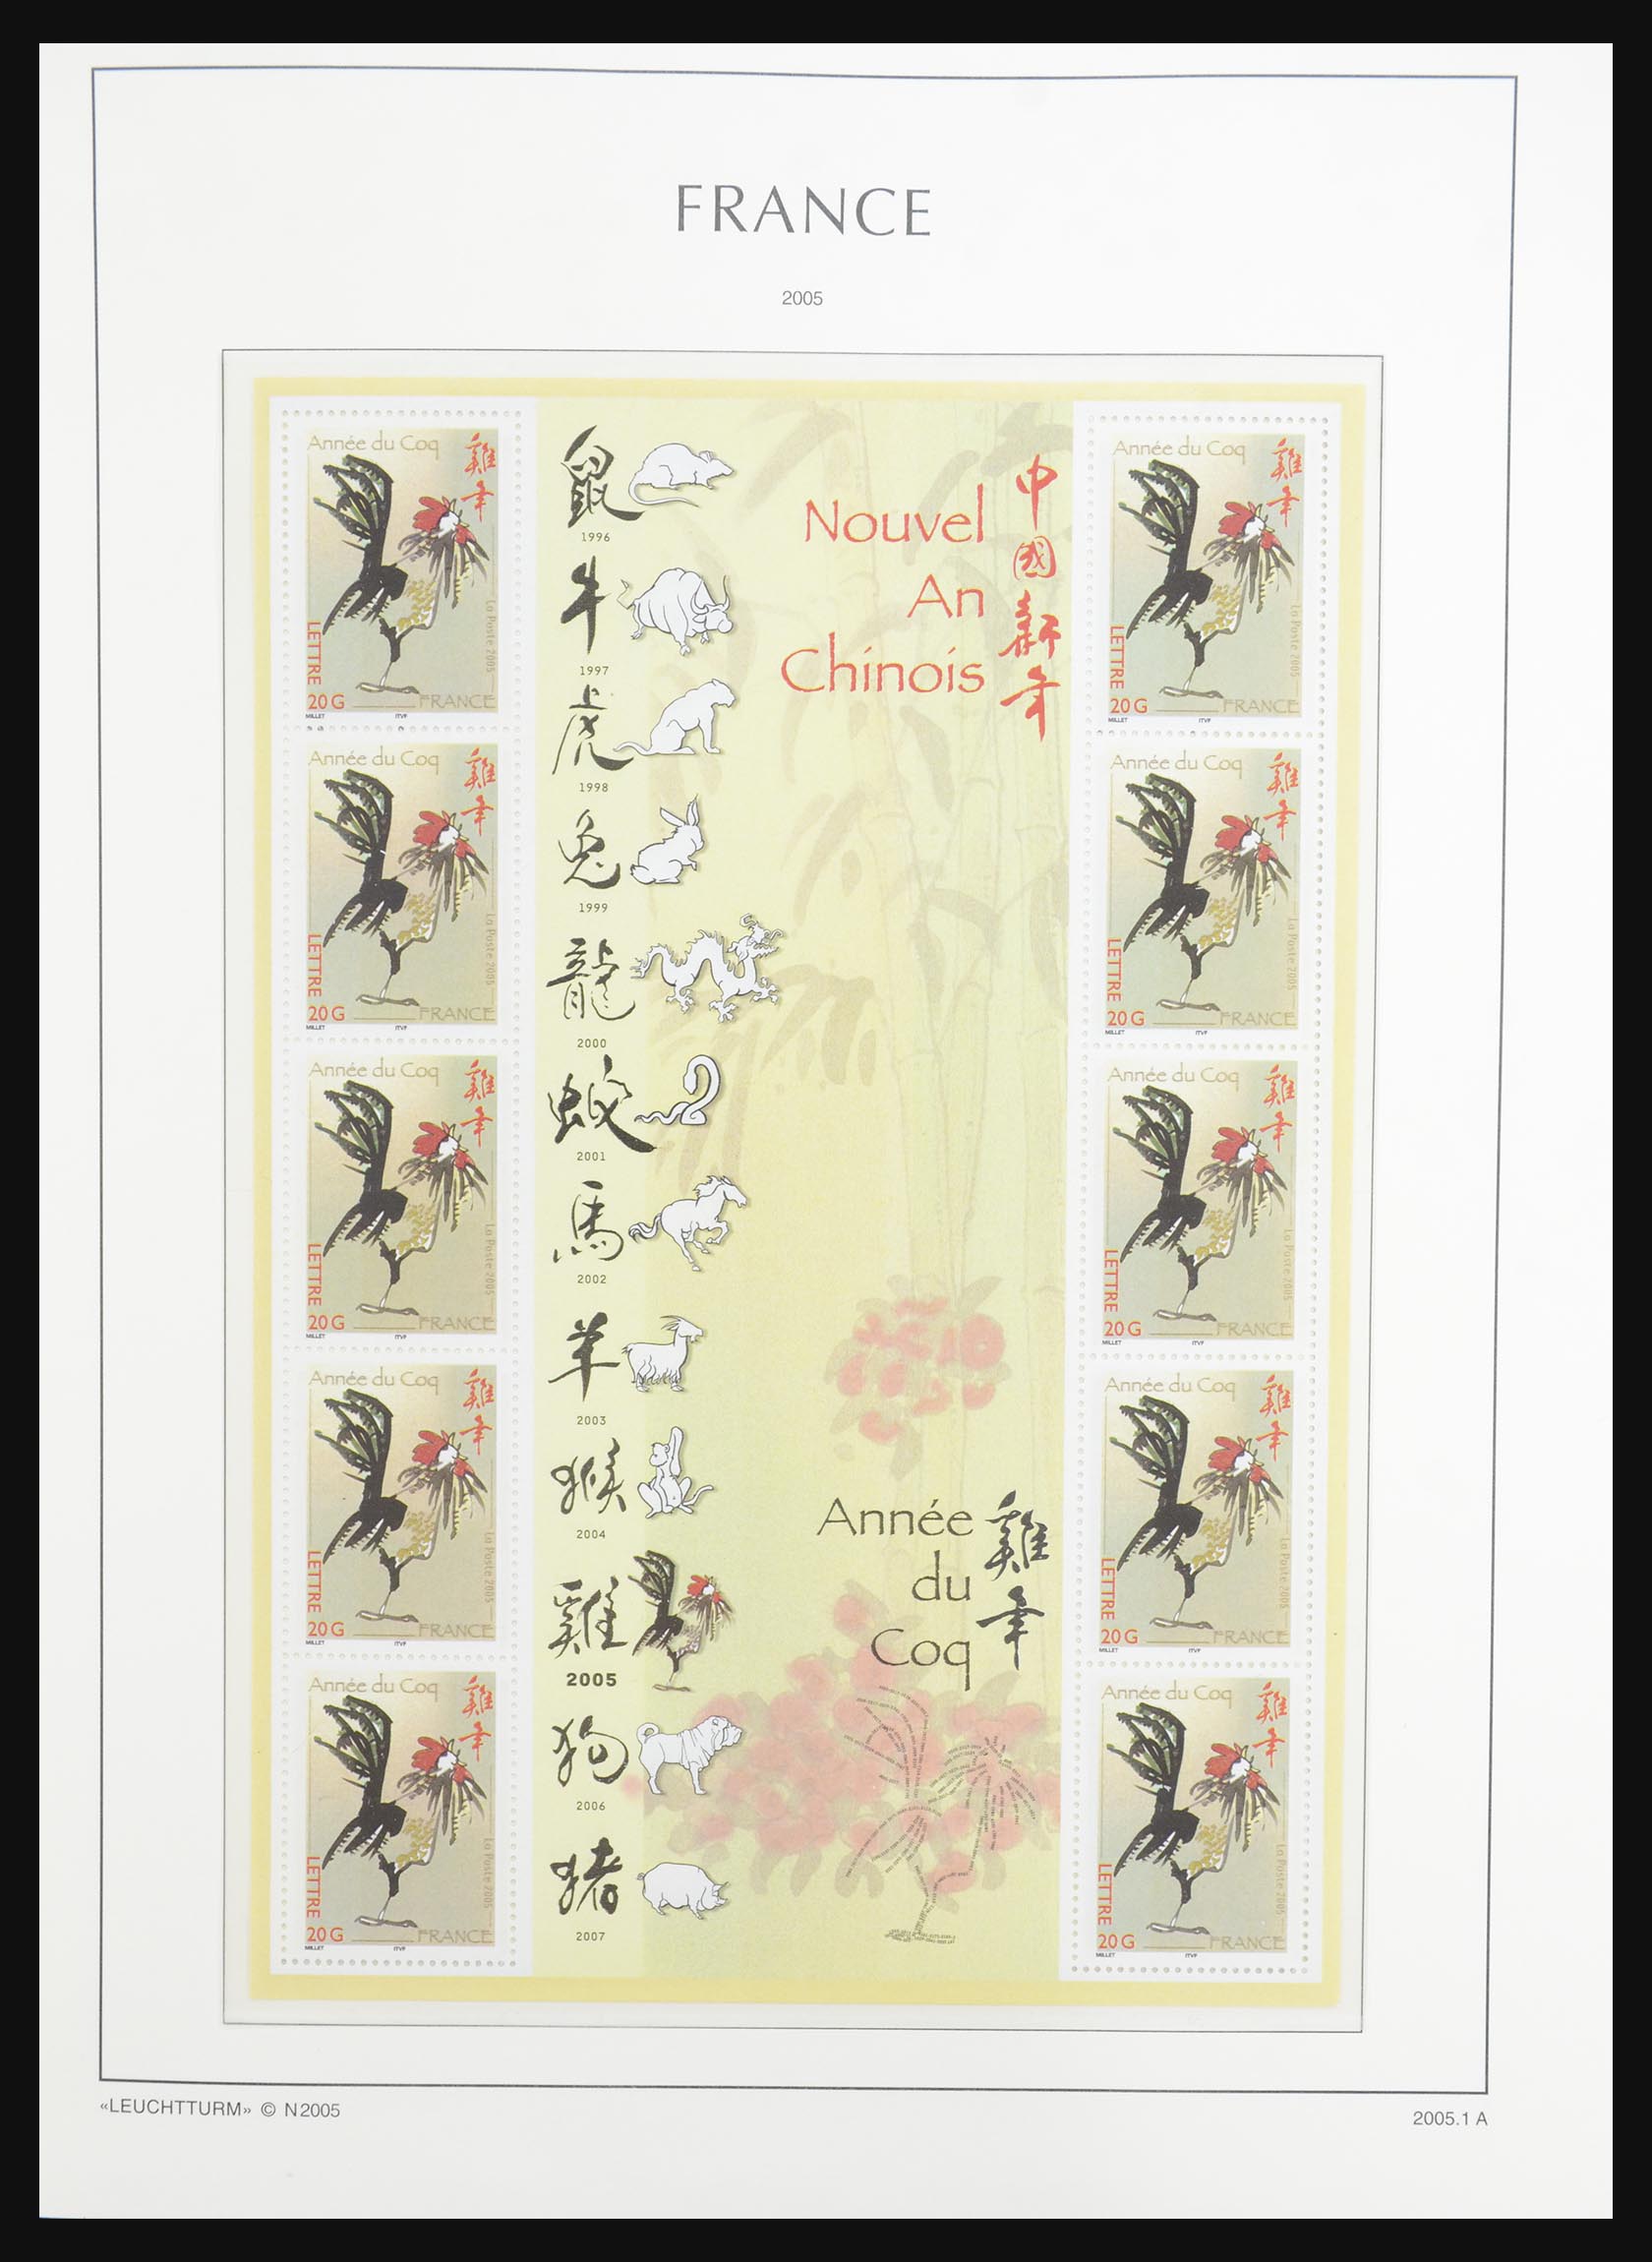 FRANCE
2005
Année du Coq
雞年
La Poste 2005
LETTRE
20 G
FRANCE
MILLET
ITVF
Année du Coq
雞年
La Poste 2005
LETTRE
20 G
FRANCE
MILLET
ITVF
Année du Coq
雞年
La Poste 2005
LETTRE
20 G
FRANCE
MILLET
ITVF
Année du Coq
雞年
La Poste 2005
LETTRE
20 G
FRANCE
MILLET
ITVF
Année du Coq
雞年
La Poste 2005
LETTRE
20 G
FRANCE
MILLET
ITVF
鼠
1996
牛
1997
虎
1998
兔
1999
龍
2000
蛇
2001
馬
2002
羊
2003
猴
2004
雞
2005
狗
2006
猪
2007
Nouvel
An
Chinois
中國新年
Année
du
Coq
雞年
Année du Coq
雞年
La Poste 2005
LETTRE
20 G
FRANCE
MILLET
ITVF
Année du Coq
雞年
La Poste 2005
LETTRE
20 G
FRANCE
MILLET
ITVF
Année du Coq
雞年
La Poste 2005
LETTRE
20 G
FRANCE
MILLET
ITVF
Année du Coq
雞年
La Poste 2005
LETTRE
20 G
FRANCE
MILLET
ITVF
Année du Coq
雞年
La Poste 2005
LETTRE
20 G
FRANCE
MILLET
ITVF
«LEUCHTTURM» © N2005
2005.1 A